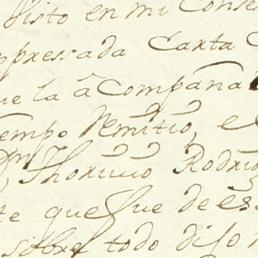 Visto en mi Conse
xpressada Carta
ue la aCompaña
empo Remitio, e
Dn Thoriuio Rodrig
te que fue de es
sobre todo dijo m